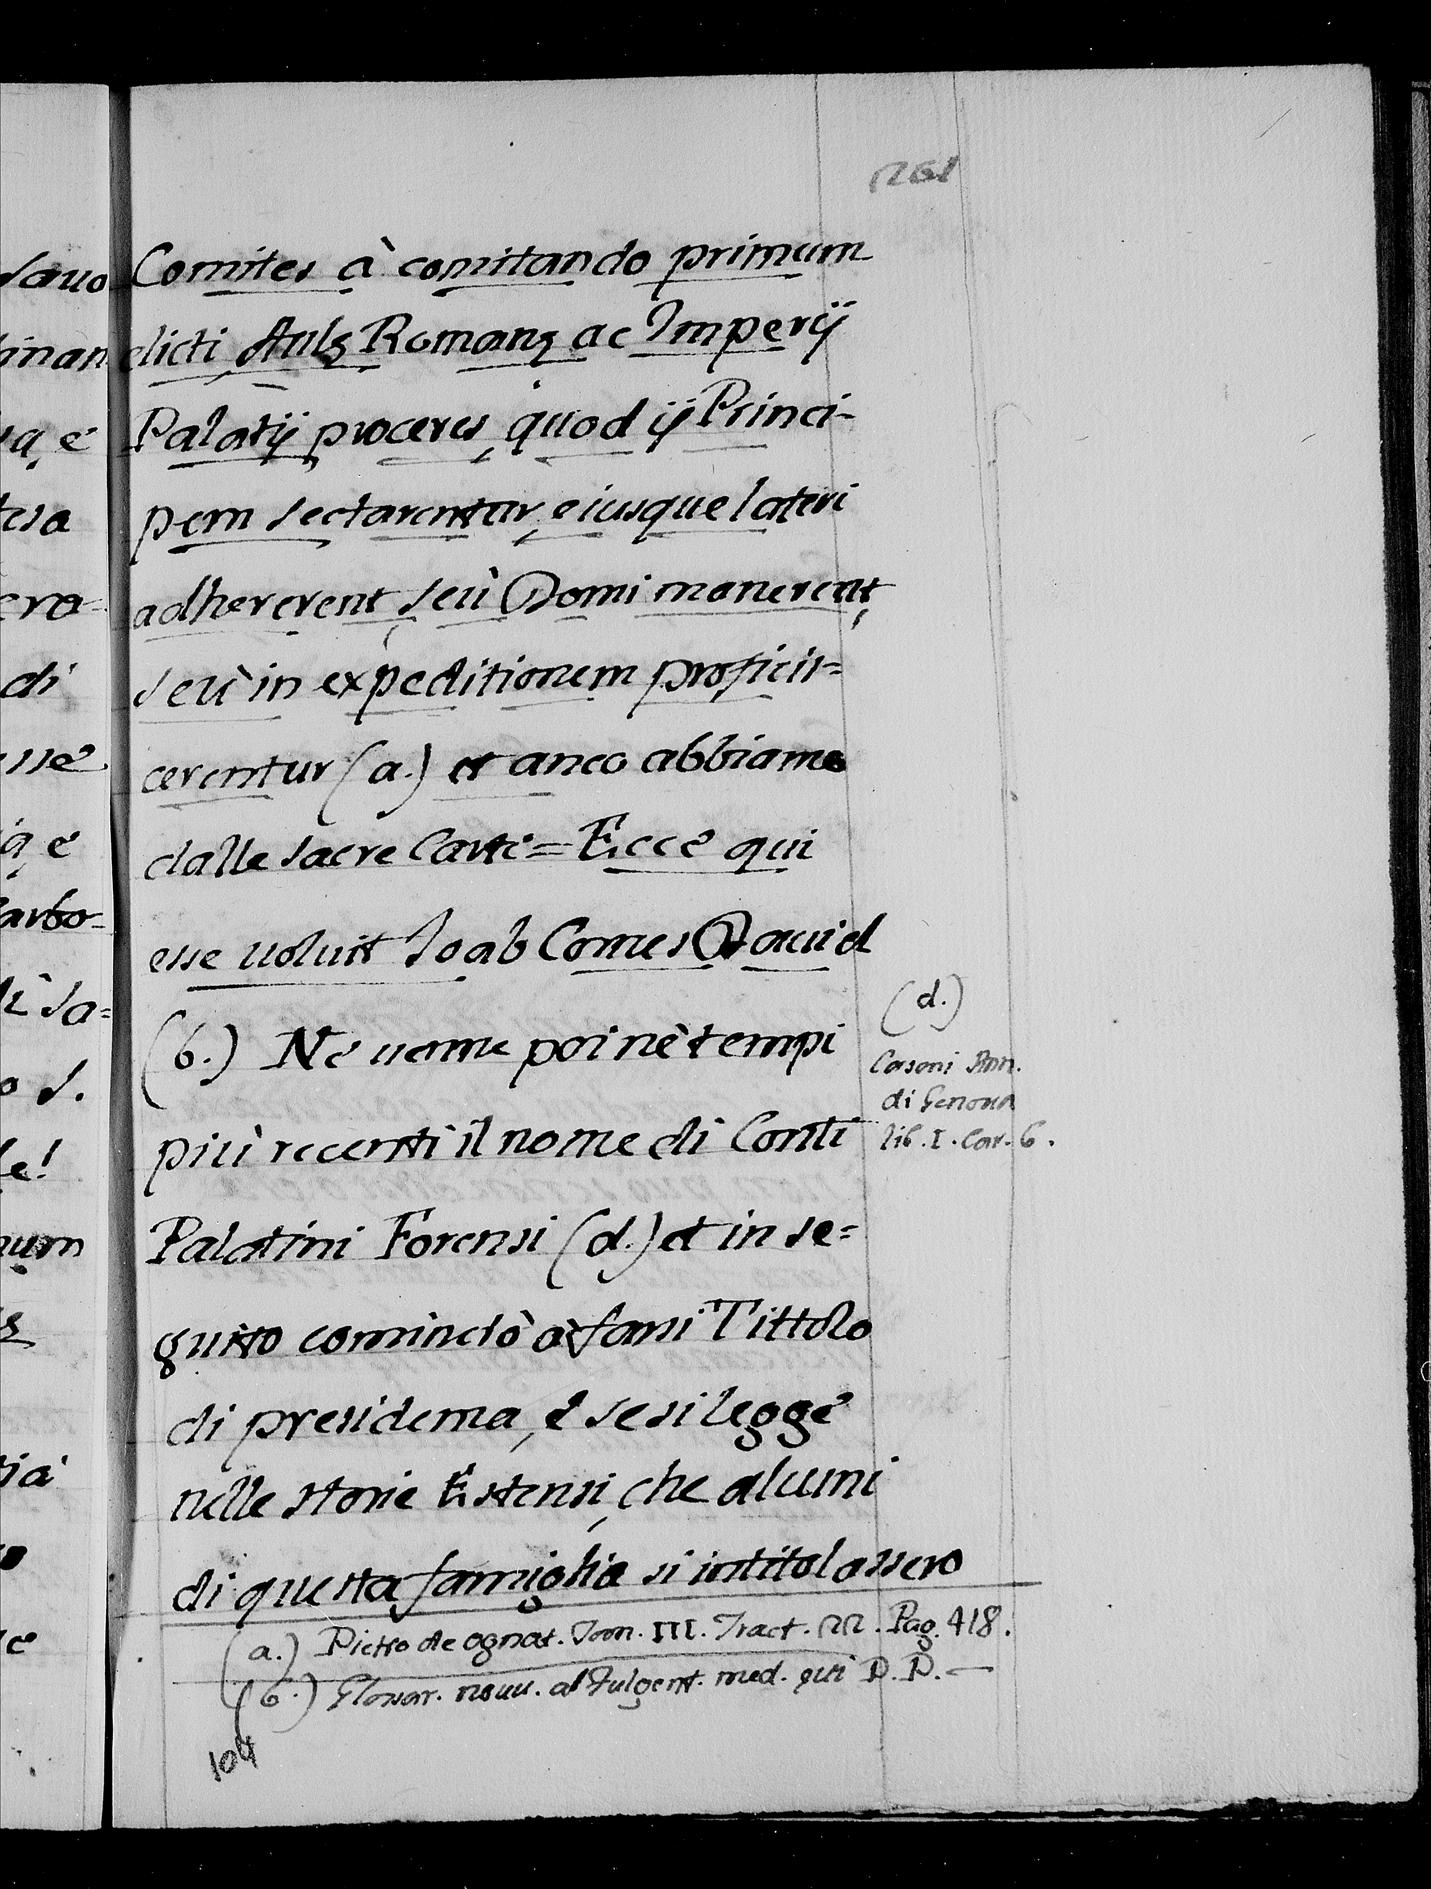 261
Comites à comitando primum
dicti, Aulę Romanę ac Imperij
Palatij proceres, quod ij Princi-
pem sectarentur, eiusque lateri
adhererent, seù Domi manerent,
seù in expeditionem proficis=
cerentur (a.) et anco abbiamo
dalle sacre Carte = Ecce qui
esse uoluit Ioab Comes Dauid
(b.) Ne uenne poi nè tempi
più recenti il nome di Conti
Palatini Forensi (d.) et in se=
guito cominciò à farsi Tittolo
di presidenza, e se si legge
nelle storie Estensi, che alcuni
di questa famiglia si intitolassero
(d.)
Casoni Ann.
di Genoua
lib. I. Car. 6.
(a.) Pietro de ognat. Tom. III. Tract. 22. Pag. 418.
(b.) Glossar. nouu. al Fulgent. med. qui P. P.
104
sauo
inan
q è
tesa
era
di
sse
q e
arbo=
sa=
o S.
le!
num
ia